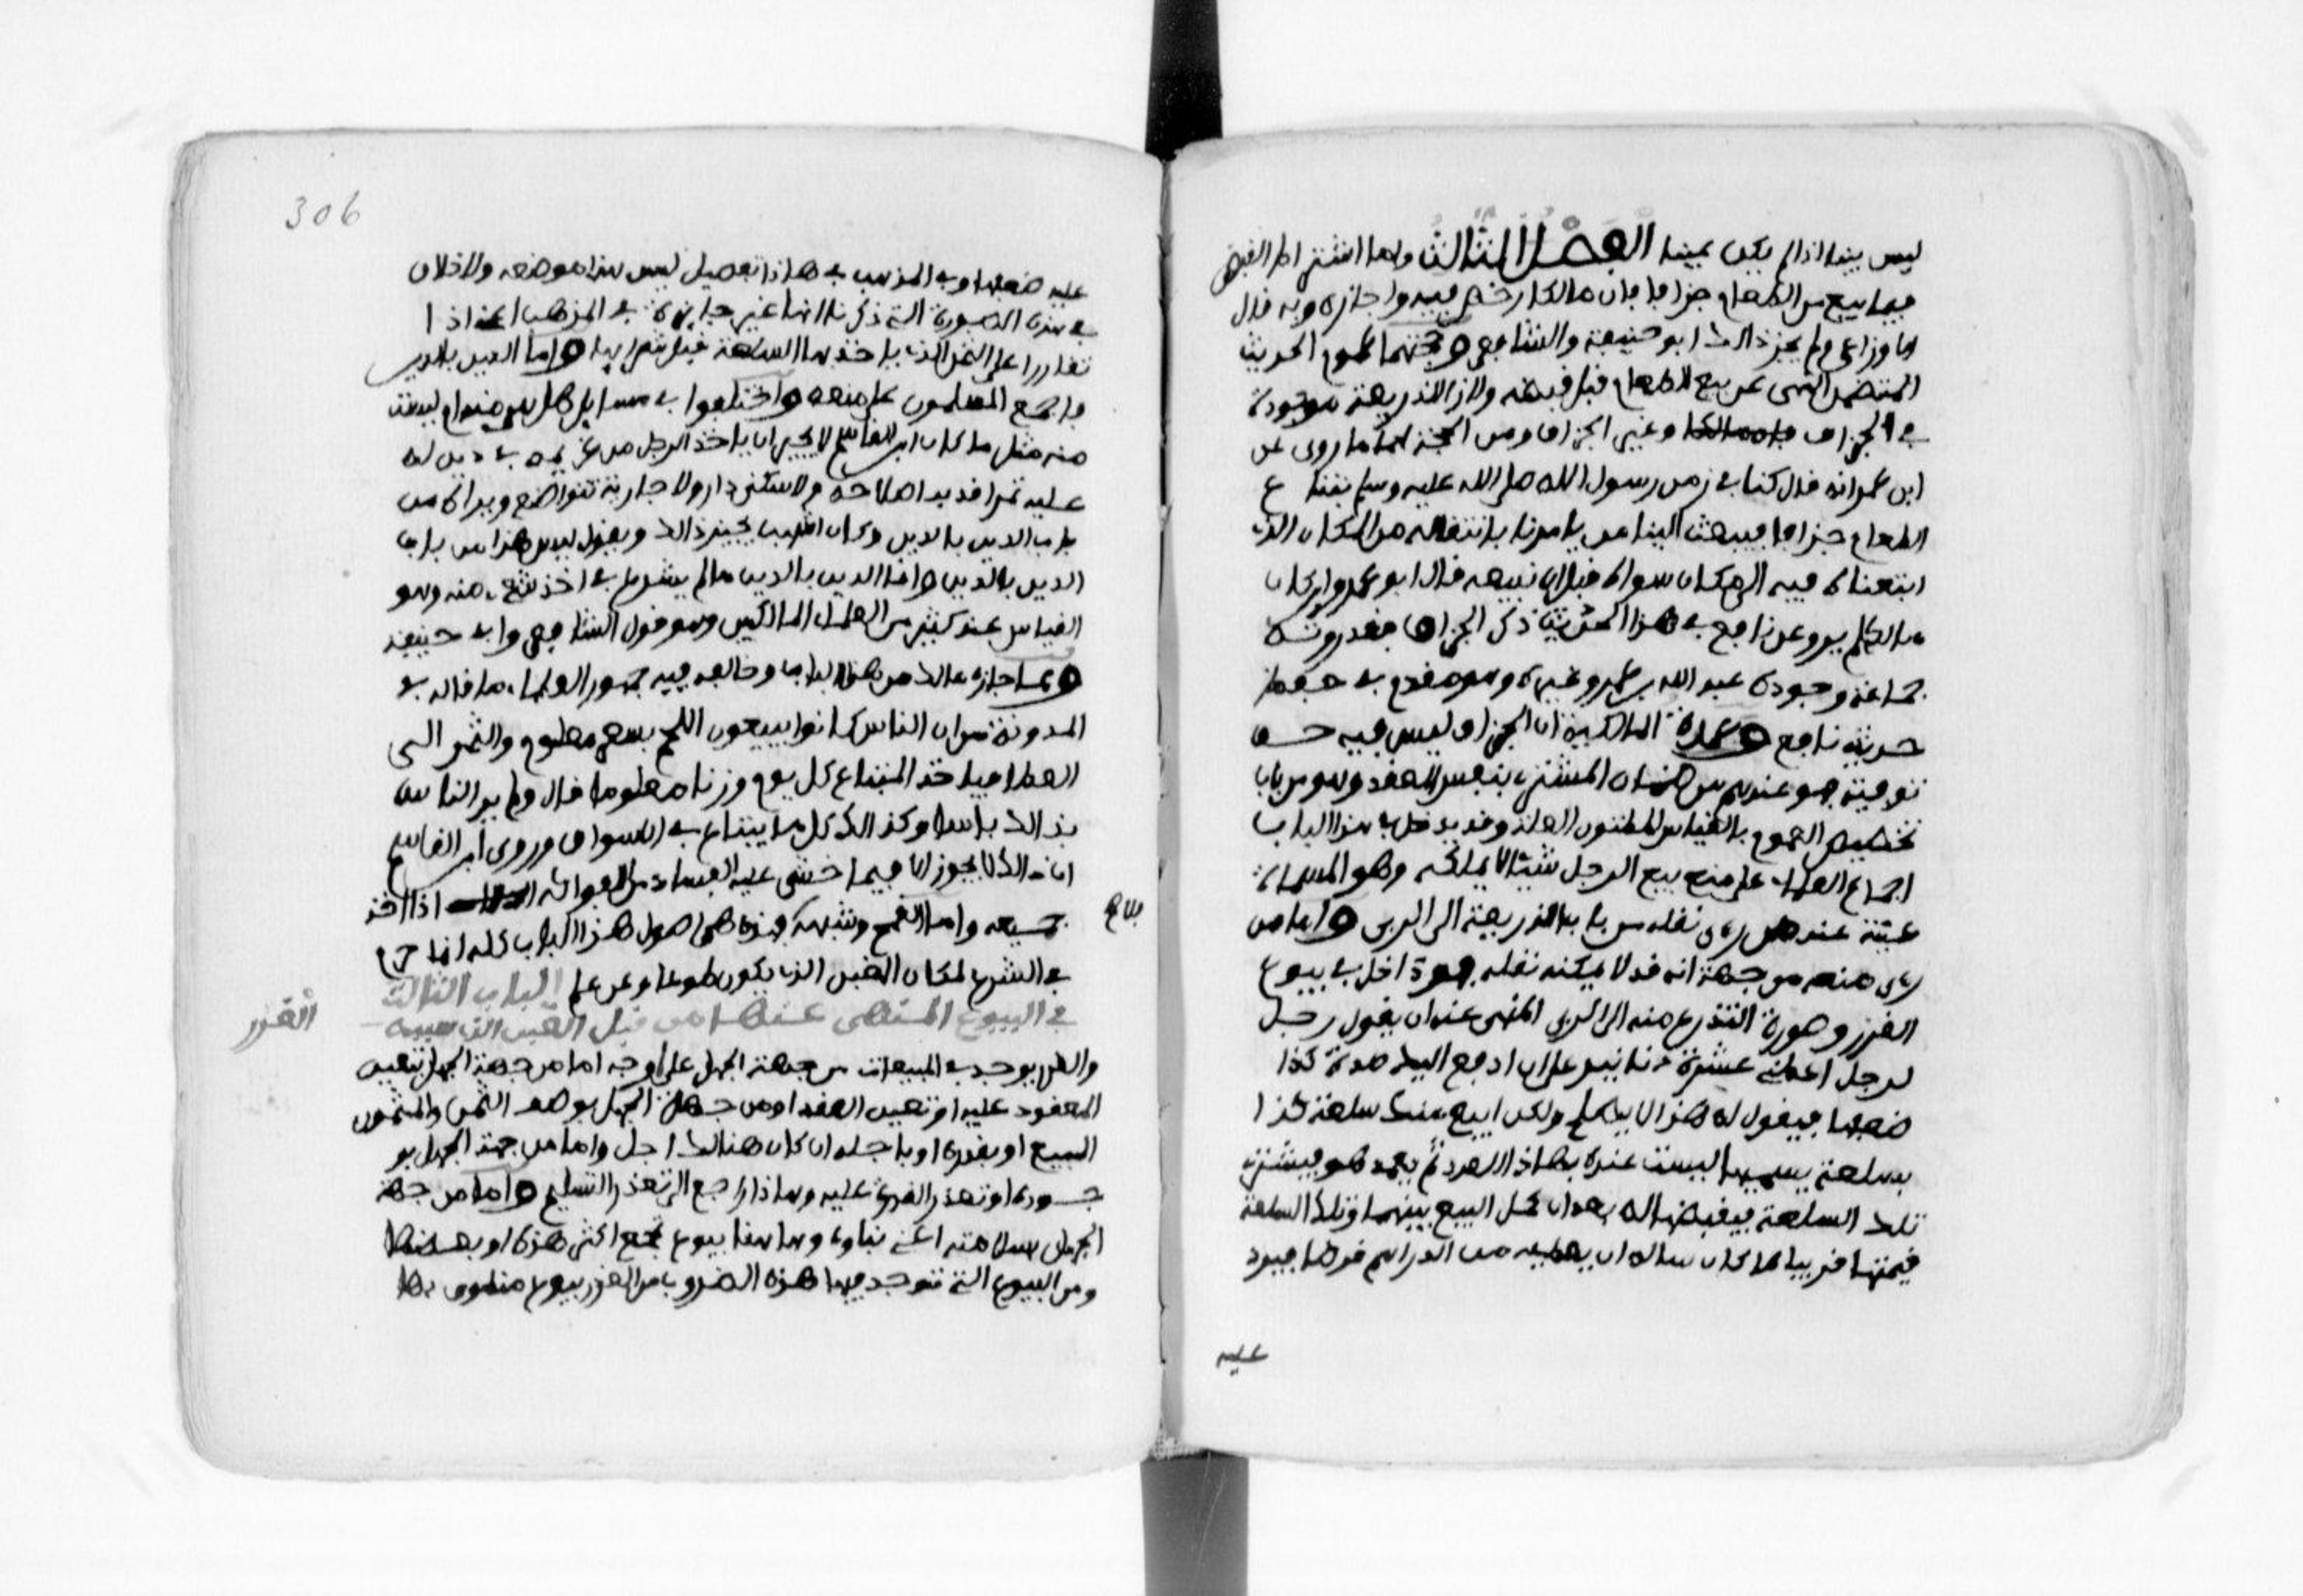 ليس بينا اذا لم يكن بمينا الفصل الثالث واما اشتراط القبض
فيما بيع من الطعام جزافا فان مالكا رخص فيه واجازه وبه قال
الاوزاعي ولم يجز ذالك ابو حنيفة والشافعي وحجتهما عموم الحديث
المتضمن النهي عن بيع الطعام قبل قبضه ولان الذريعة موجودة
في الجزاف وغير الجزاف ومن الحجة لهما ما روى عن
ابن عمر انه قال كنا في زمن رسول الله صلى الله عليه وسلم نبتاع
الطعام جزافا فيبعث الينا من يامرنا بانتقاله من المكان الذي
ابتعناه فيه الى مكان سواه قبل ان نبيعه قال ابو عمر وان كان
مالك لم يرو عن نافع في هذا الحديث ذكر الجزاف فقد روته
جماعة وجوده عبد الله بن عمر وغيره وهو مقدم في حفظ
حديث نافع وعمدة المالكية ان الجزاف ليس فيه حق
توفية فهو عندهم من ضمان المشتري بنفس العقد وهو من باب
تخصيص العموم بالقياس المظنون العلة وقد يدخل في هذا الباب
اجماع العلماء على منع بيع الرجل شيئا لا يملكه وهو المسماة
عينة عند من راى نقله من باب الذريعة الى الربى واما من
راى منعه من جهة انه قد لا يمكنه نقله فهو داخل في بيوع
الغرر وصورة التذرع منه الى الربى المنهى عنه ان يقول رجل
لرجل اعطني عشرة دنانير على ان ادفع اليك مدة كذا
ضعفها فيقول له هذا لا يصلح ولكن ابيع منك سلعة كذا
بسلعة يسميها ليست عنده بهاذا العدد ثم يعمد هو فيشتري
تلك السلعة فيقبضها له بعد ان كمل البيع بينهما وتلك السلعة
قيمتها قريبا مما كان ساله ان يعطيه من الدراهم قرضا فيرد
عليه
306
عليه ضعفها وفي المذهب في هاذا تفصيل ليس هذا موضعه ولا خلاف
في هذه الصورة التي ذكرنا انها غير جايزة في المذهب اعني اذا
تقاررا على الثمن الذي ياخذ بها السلعة قبل شرايها واما الدين بالدين
فاجمع المسلمون على منعه واختلفوا في مسايل هل هي منه ام ليست
منه مثل ما كان ابن القاسم لا يجيز ان ياخذ الرجل من غريمه في دين له
عليه ثمرا قد بدا صلاحه ولا سكنى دار ولا جارية تتواضع ويراه من
باب الدين بالدين وكان اشهب يجيز ذالك ويقول ليس هذا من باب
الدين بالدين وانما الدين بالدين ما لم يشرع في اخذ شيء منه وهو
القياس عند كثير من العلماء المالكيين وهو قول الشافعي وابي حنيفة
ومما اجازه مالك من هذا الباب وخالفه فيه جمهور العلماء ما قاله في
المدونة من ان الناس كانوا يبيعون اللحم بسعر معلوم والثمن الى
العطا فياخذ المبتاع كل يوم وزنا معلوما قال ولم ير الناس
بذالك باسا وكذالك كل ما يبتاع في الاسواق وروى ابن القاسم
ان ذالك لا يجوز الا فيما خشي عليه الفساد من الفواكه اذا اخذ
جميعه واما القمح وشبهه فهذه هي اصول هذا الباب كله انما حرم
في الشرع لمكان الغبن الذي يكون طوعا وعن علم الباب الثالث
في البيوع المنهى عنها من قبل الغبن الذي سببه
الغرر
والغرر يوجد في المبيعات من جهة الجهل على اوجه اما من جهة الجهل بتعيين
المعقود عليه او تعيين العقد او من جهة الجهل بوصف الثمن والمثمون
المبيع او بقدره او باجله ان كان هنالك اجل واما من جهة الجهل بو
جوده او تعذر القدرة عليه وهاذا راجع الى تعذر التسليم واما من جهة
الجهل بسلامته اعني بقاوه وهاهنا بيوع تجمع اكثر هذه او بعضها
ومن البيوع التي توجد فيها هذه الضروب من الغرر بيوع منطوق بها